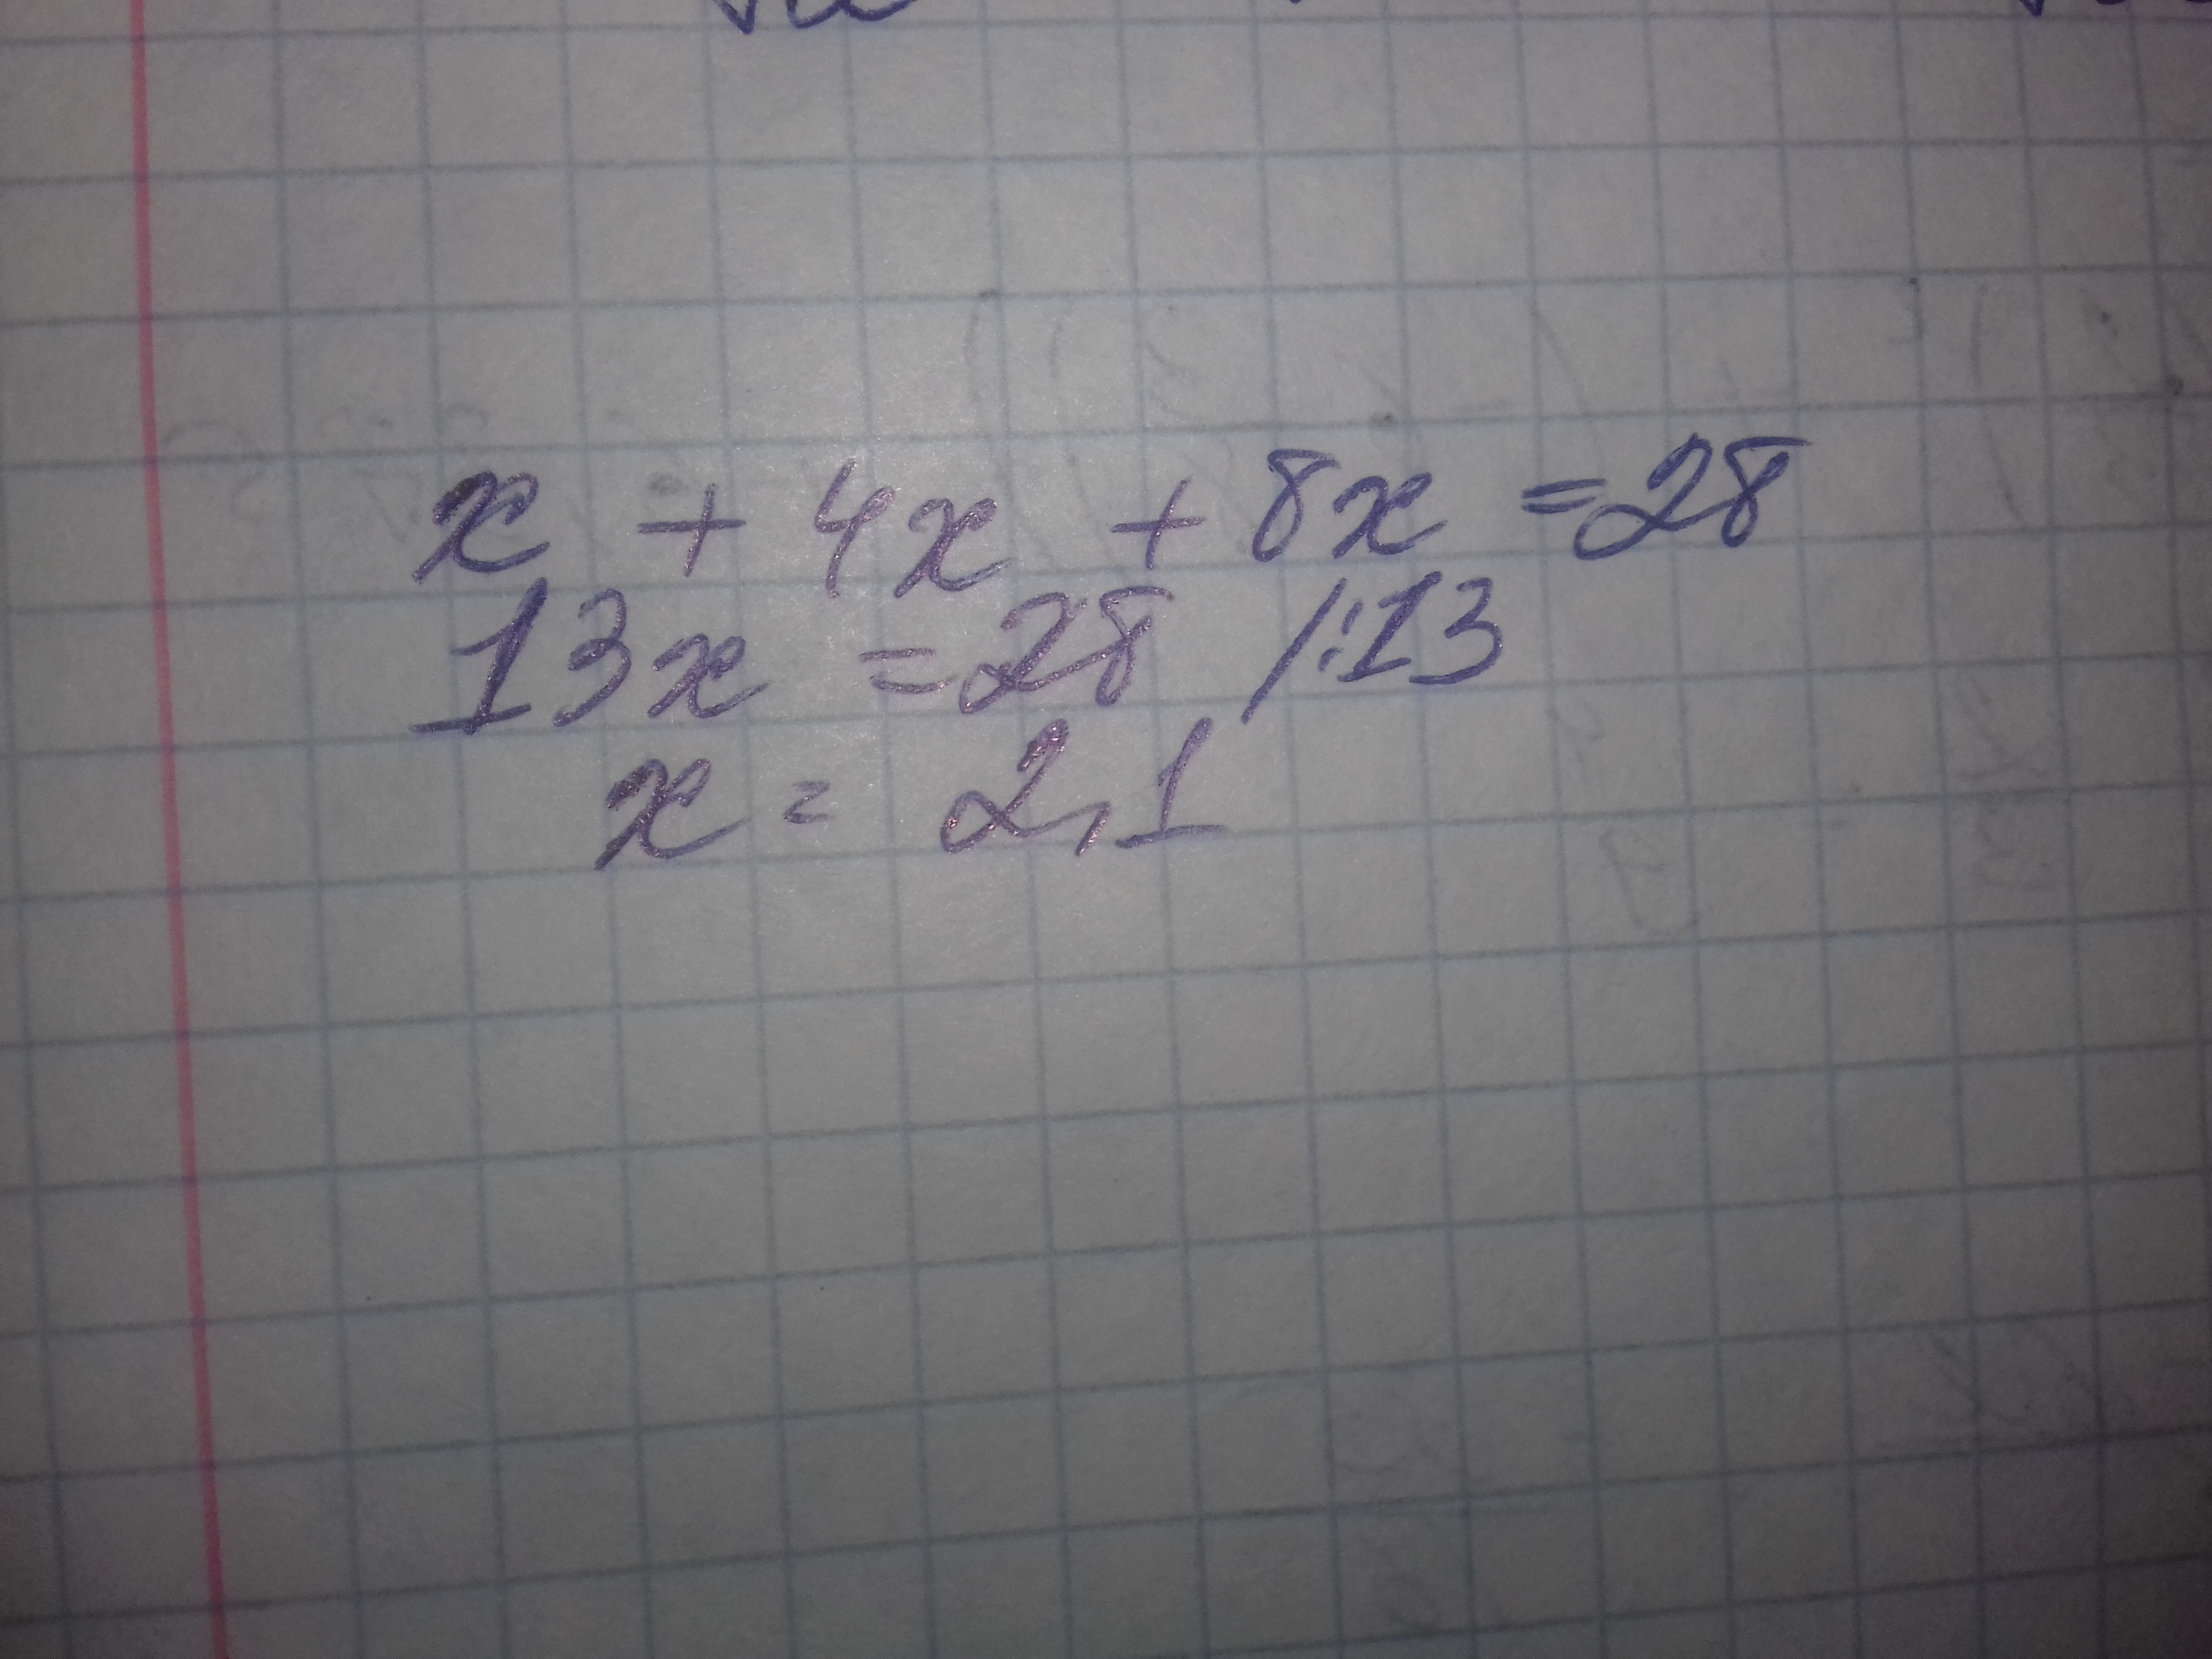 x + 4x + 8x = 28
13x = 28 /:13
x = 2,1